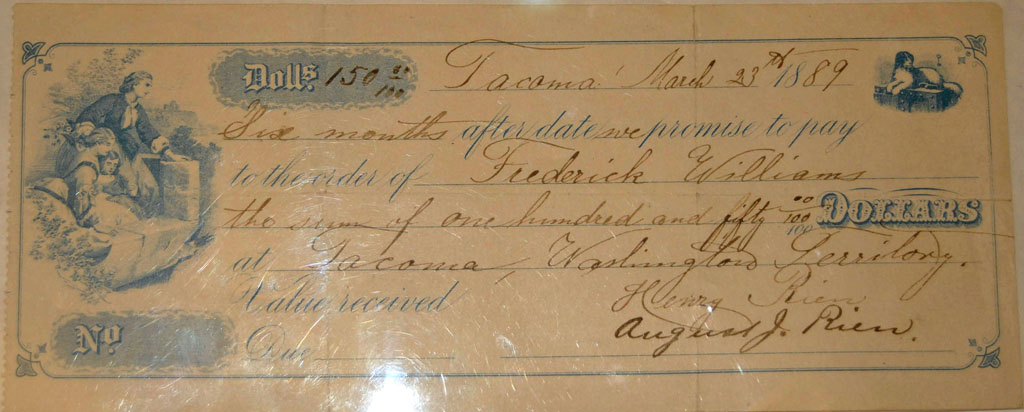 Dolls. 150 00/100 Tacoma March 23th 1889
Six months after date we promise to pay
to the order of Frederick Williams
the sum of one hundred and fifty 00/100 DOLLARS
at Tacoma, Washington Territory.
Value received Henry Rien
No. August J. Rien.
Due